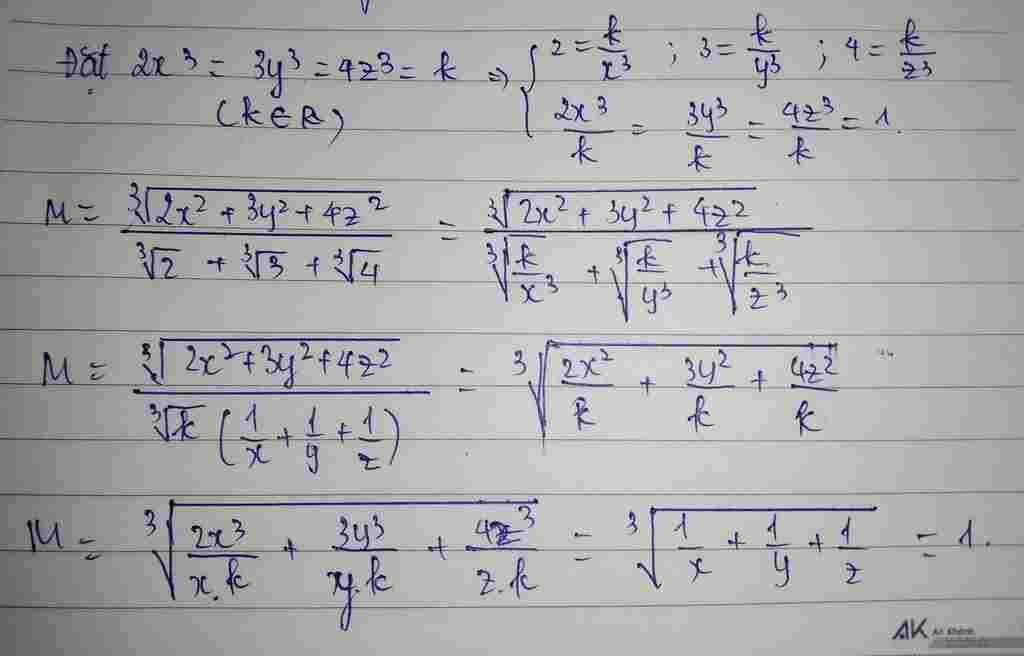 Đặt 2x³ = 3y³ = 4z³ = k ⇒ { 2 = k/x³ ; 3 = k/y³ ; 4 = k/z³
(k∈R) 2x³/k = 3y³/k = 4z³/k = 1.
M = ∛(2x² + 3y² + 4z²) / (∛2 + ∛3 + ∛4) = ∛(2x² + 3y² + 4z²) / (∛(k/x³) + ∛(k/y³) + ∛(k/z³))
M = ∛(2x² + 3y² + 4z²) / (∛k (1/x + 1/y + 1/z)) = ∛(2x²/k + 3y²/k + 4z²/k)
M = ∛(2x³/(x.k) + 3y³/(y.k) + 4z³/(z.k)) = ∛(1/x + 1/y + 1/z) = 1.
AK An Khánh